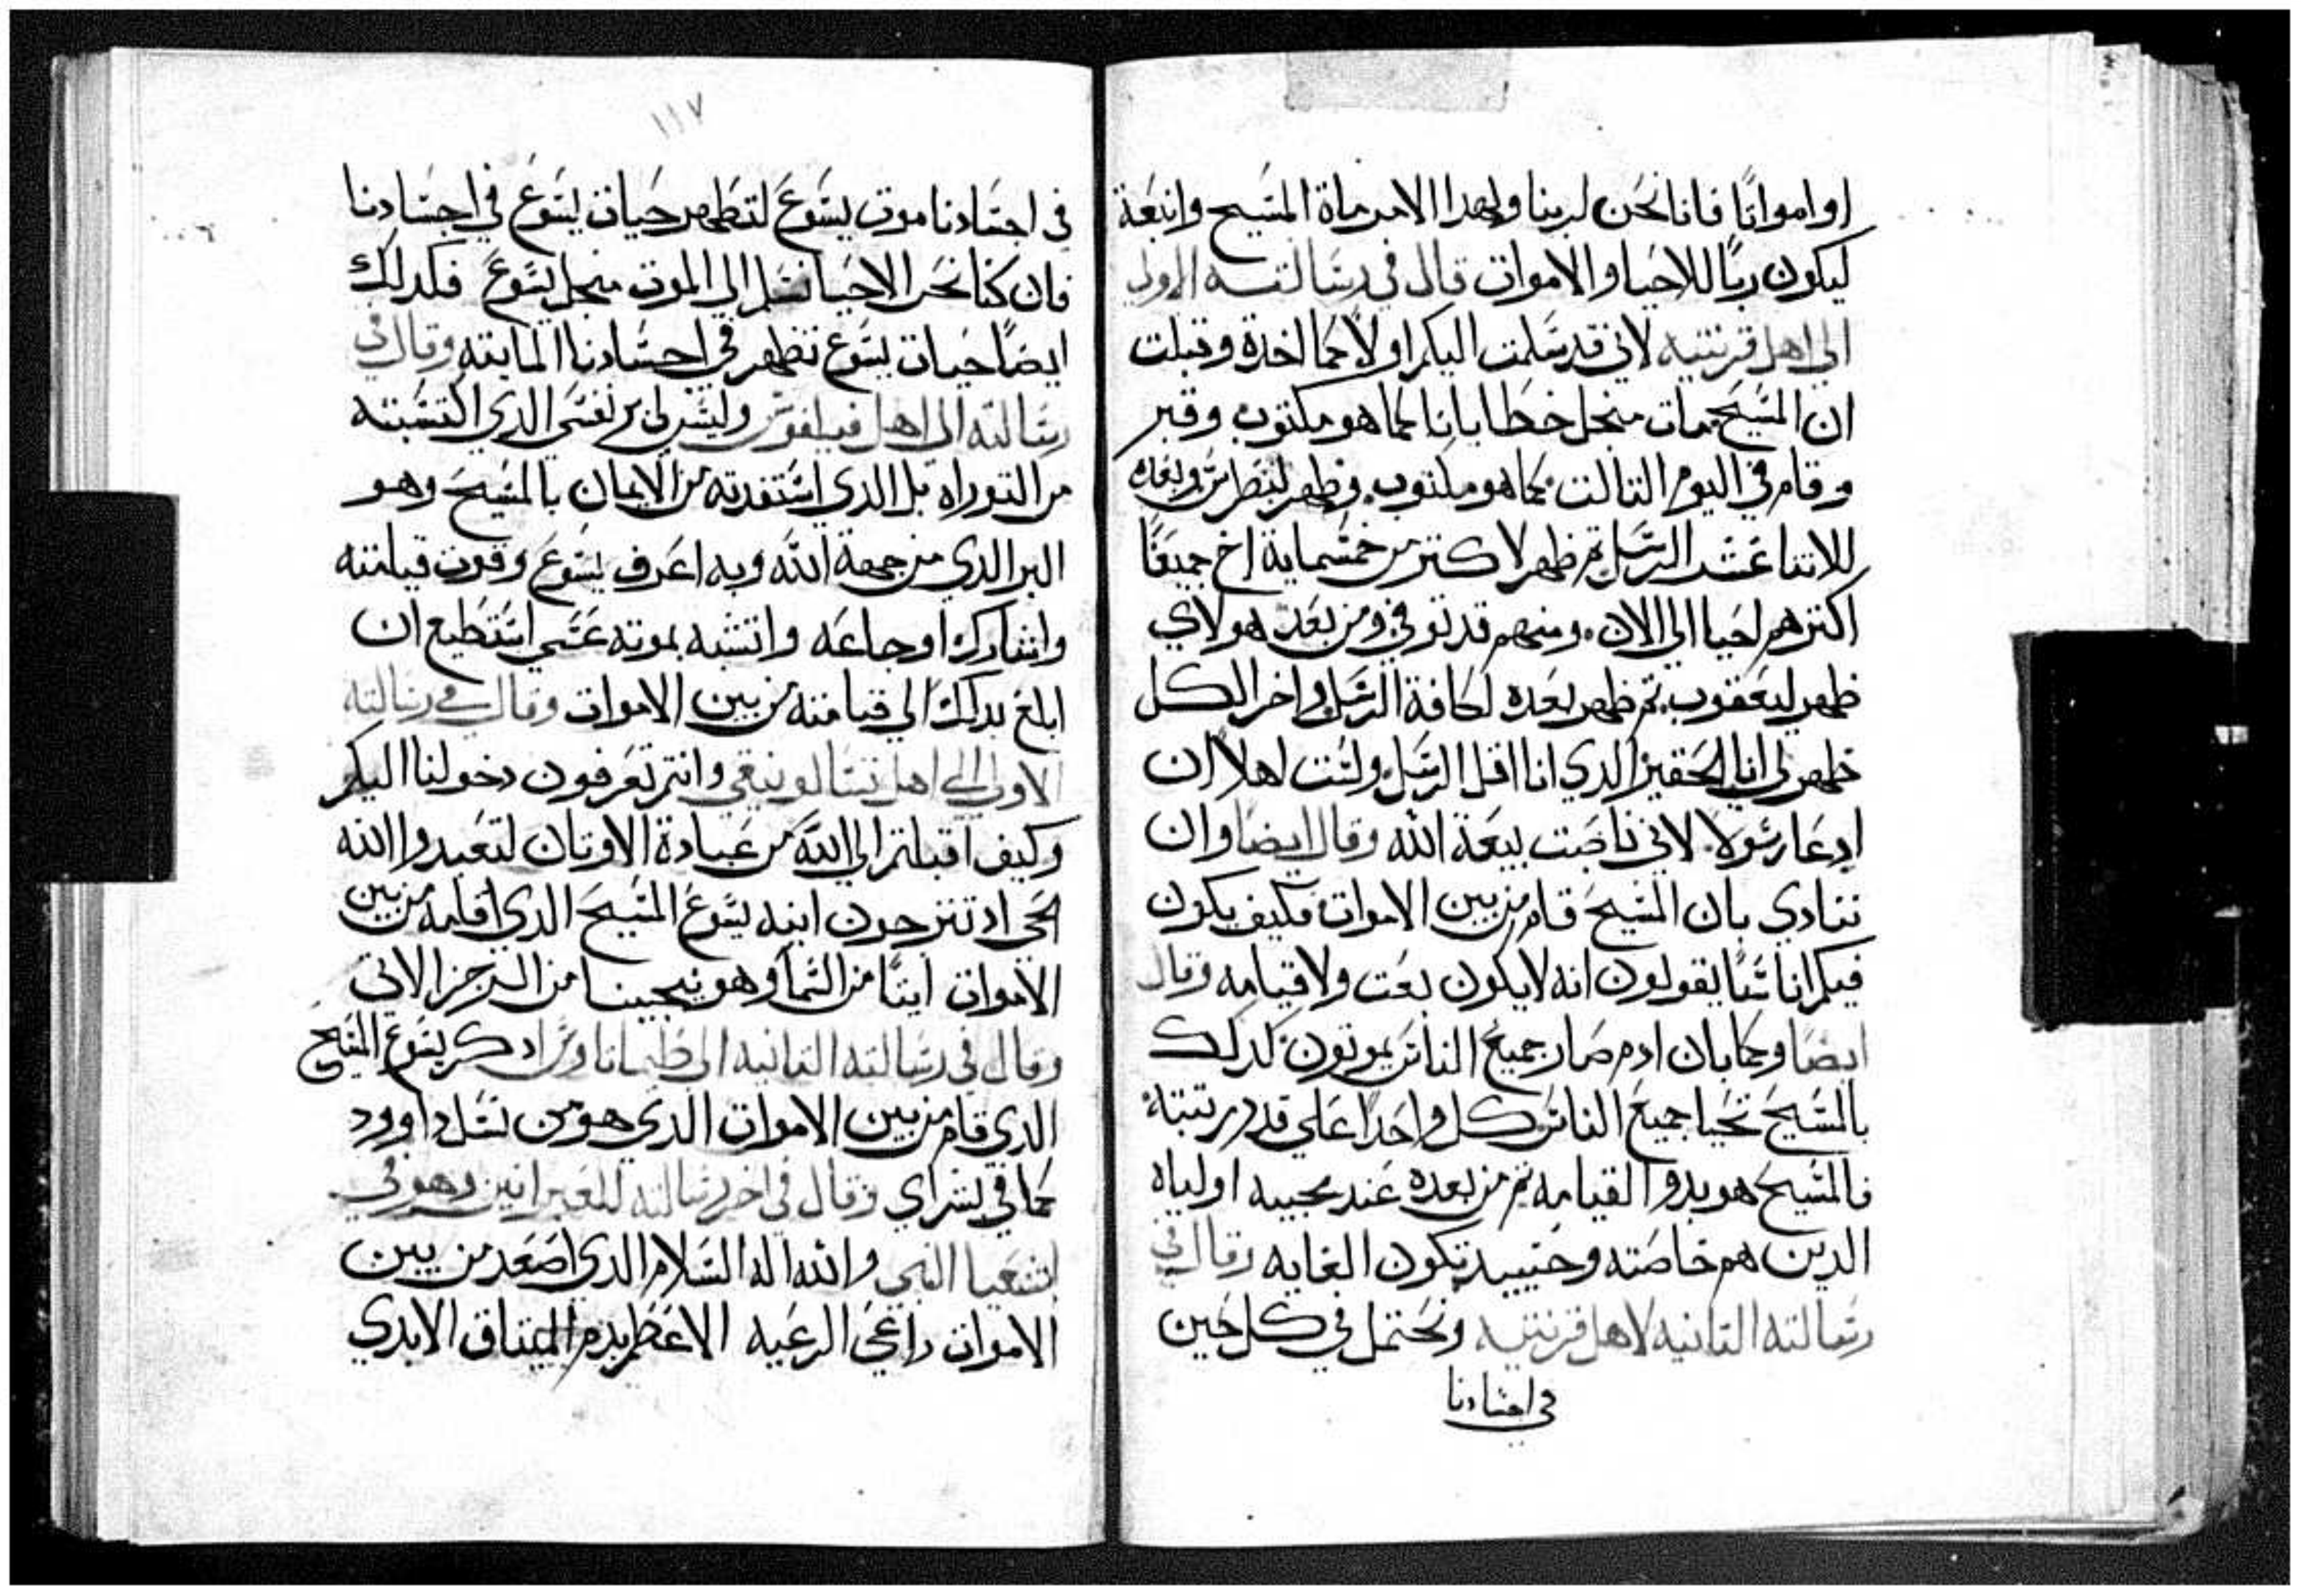 او امواتًا فانا نحن لربنا ولهدا الامر ماة المسيح وانبعة
ليكون ربًا للاحيا والاموات قال في رسالته الاولي
الي اهل قرنتيه لاني قد سلمت اليكم اولًا كما اخدة وقبلت
ان المسيح مات منجل خطايانا كما هو مكتوب وقبر
وقام في اليوم التالت كما هو مكتوب وظهر لبطرس وبعده
للاتنا عشر الرسل تم ظهر لاكتر من خمسماية اخ جميعًا
اكترهم احيا الي الان ومنهم قد توفي ومن بعد هولاي
ظهر ليعقوب تم ظهر بعده لكافة الرسل واخر الكل
ظهر لي انا الحقير الدي انا اقل الرسل ولست اهلًا ان
ادعا رسولًا لاني ناصبت بيعة الله وقال ايضا وان
ننادي بان المسيح قام من بين الاموات فكيف يكون
فيكم اناسًا يقولون انه لا يكون بعت ولا قيامه وقال
ايضا وكما بان ادم صار جميع الناس يموتون كدلك
بالمسيح تحيا جميع الناس كل واحدًا علي قدر رتبته
فالمسيح هو بدو القيامه تم من بعده عند مجييه اولياه
الدين هم خاصته وحينيد تكون الغايه وقال في
رسالته التانيه لاهل قرنتيه ونحتمل في كل حين
في اجسادنا
١١٧
في اجسادنا موت يسوع لتظهر حيات يسوع في اجسادنا
فان كنا نحن الاحيا نسلم الي الموت منجل يسوع فكدلك
ايضًا حيات يسوع تظهر في اجسادنا المايته وقال في
رسالته الي اهل فيلفوس وليس لي بر نفسي الدي اكتسبته
من التوراه بل الدي استفدته من الايمان بالمسيح وهو
البر الدي من جهة الله وبه اعرف يسوع وقوت قيامته
واشارك اوجاعه واتشبه بموته عسي استطيع ان
ابلغ بدلك الي قيامته من بين الاموات وقال في رسالته
الاولي الي اهل تسالونيقي وانتم تعرفون دخولنا اليكم
وكيف اقبلتم الي الله من عبادة الاوتان لتعبدوا الله
الحي اد تترجون ابنه يسوع المسيح الدي اقامه من بين
الاموات اتيًا من السما وهو ينجينا من الرجز الاتي
وقال في رسالته التانيه الي طيماتاوس ادكر يسوع المسيح
الدي قام من بين الاموات الدي هو من نسل داوود
كما في بشراي وقال في اخر رسالته للعبرانيين وهو في
اشعيا النبي والله اله السلام الدي اصعد من بين
الاموات راعي الرعيه الاعظم بدم الميتاق الابدي